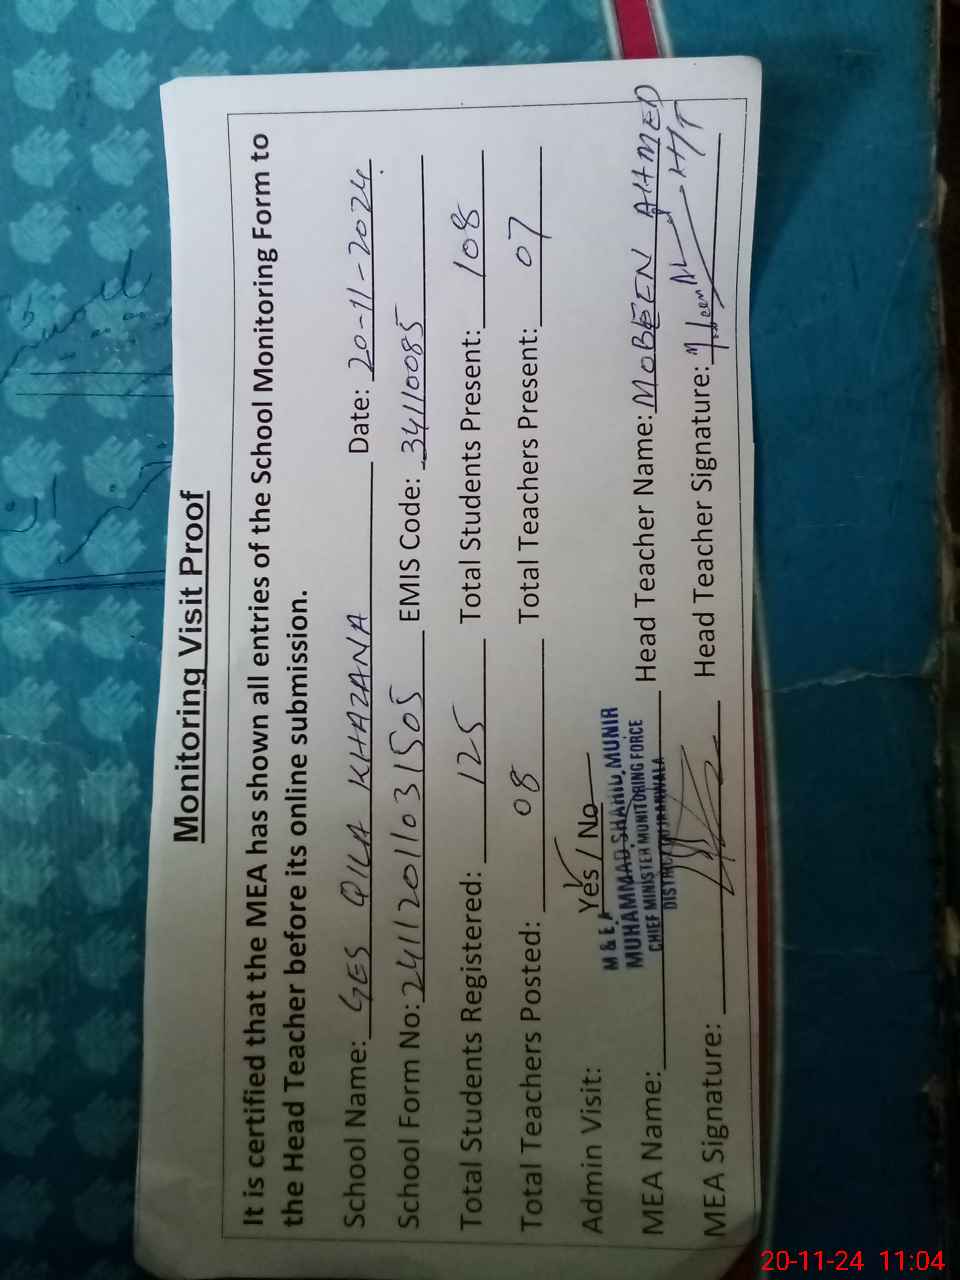 Monitoring Visit Proof
It is certified that the MEA has shown all entries of the School Monitoring Form to
the Head Teacher before its online submission.
School Name: GES QILA KHAZANA Date: 20-11-2024.
School Form No: 24112011031505 EMIS Code: 34110085
Total Students Registered: 125 Total Students Present: 108
Total Teachers Posted: 08 Total Teachers Present: 07
Admin Visit: Yes / No
M & E.A
MUHAMMAD SHAHID MUNIR
CHIEF MINISTER MONITORING FORCE
DISTRICT GUJRANWALA
MEA Name: Head Teacher Name: MOBEEN AHMED
MEA Signature: Head Teacher Signature: H/T
20-11-24 11:04